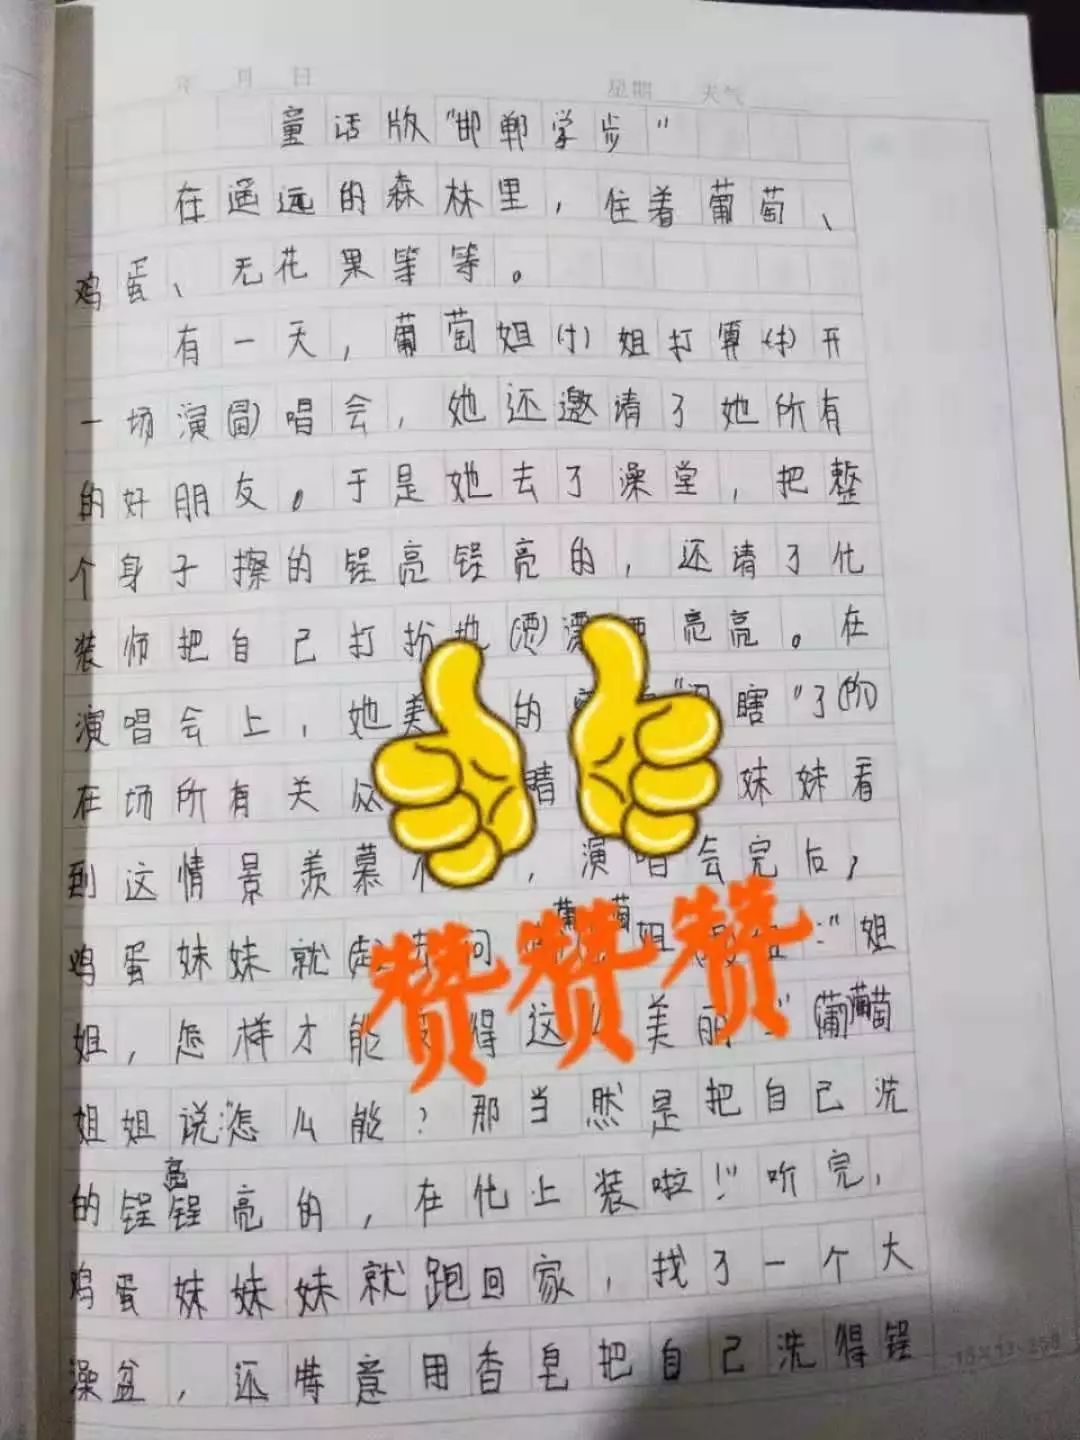 年 月 日 星期 天气
童话版"邯郸学步"
在遥远的森林里，住着葡萄、
鸡蛋、无花果等等。
有一天，葡萄姐姐打算开
一场演唱会，她还邀请了她所有
的好朋友。于是她去了澡堂，把整
个身子擦的锃亮锃亮的，还请了化
装师把自己打扮地漂 亮亮。在
演唱会上，她美 的 瞎"了
在场所有关众 睛 妹妹看
到这情景羡慕 ，演唱会完后，
鸡蛋妹妹就 问 葡萄姐 ："姐
姐，怎样才能 得这么美丽 "葡萄
姐姐说："怎么能？那当然是把自己洗
的锃亮锃亮的，在化上装啦！"听完，
鸡蛋妹妹妹就跑回家，找了一个大
澡盆，还特意用香皂把自己洗得锃
赞赞赞